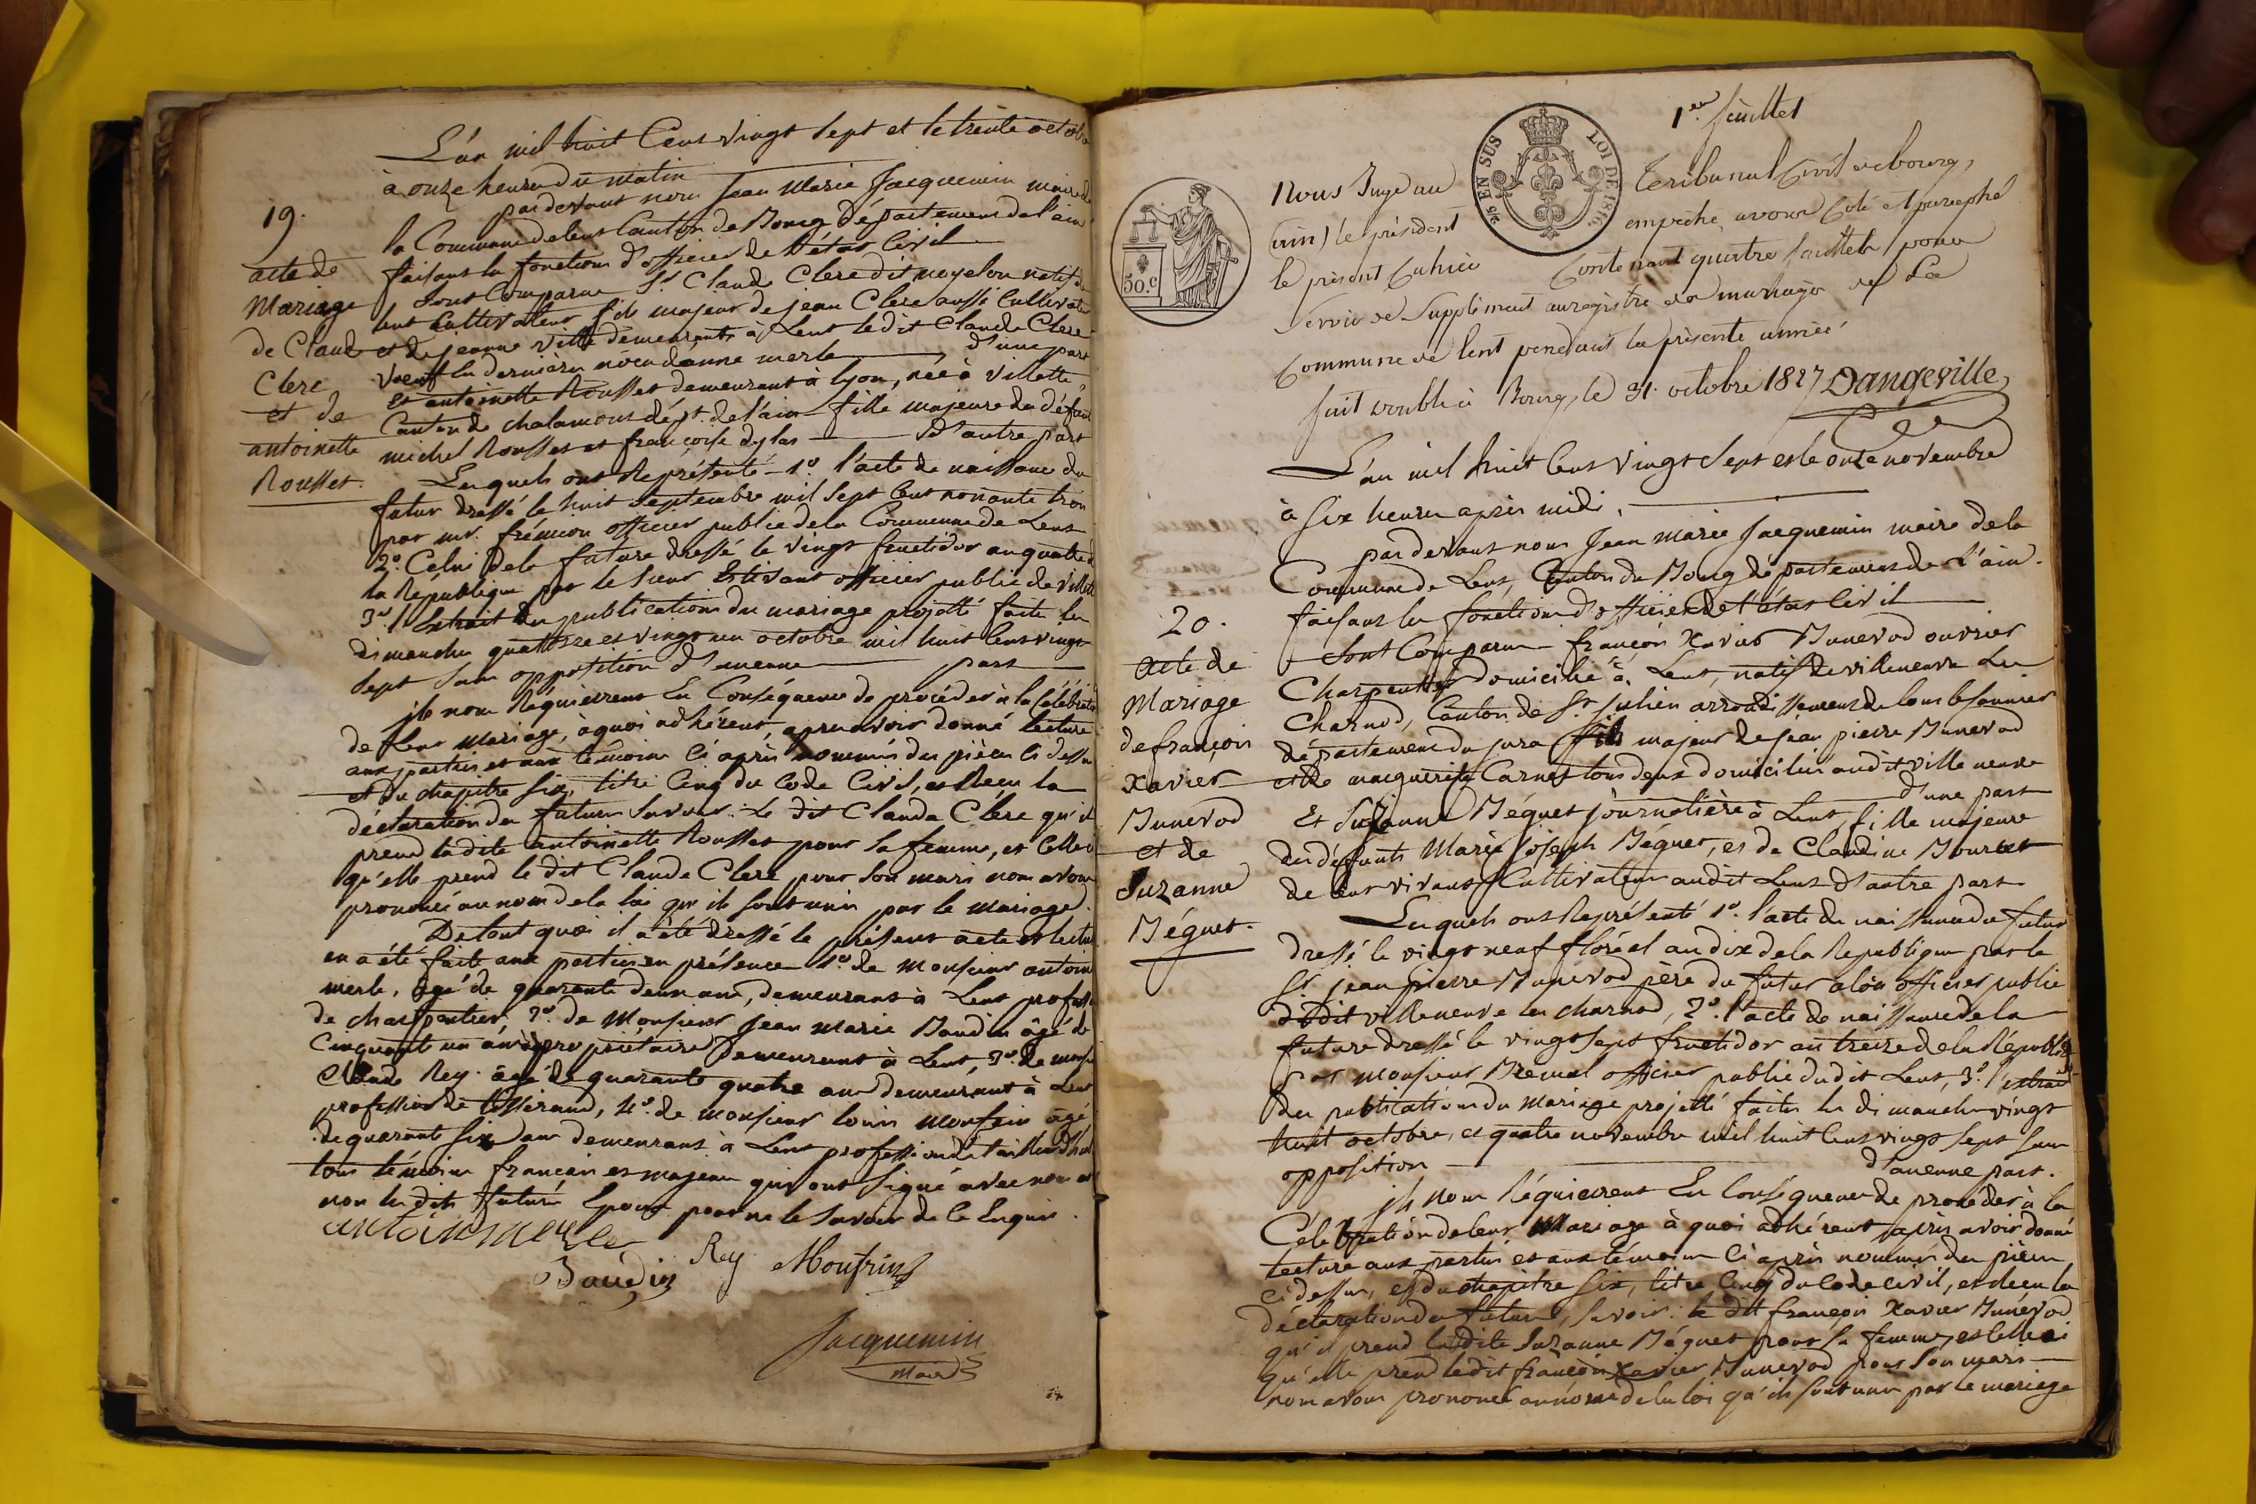 19.
acte de
Mariage
de Claude
Clerc
et de
antoinette
Rousset.
L'an mil huit Cent vingt sept et le trente octobre
à onze heures du matin
par devant nous Jean Marie Jacquemin maire de
la Commune de Lent Canton de Bourg département de l'ain
faisant les fonctions d'officier de l'état Civil
sont Comparus Sr. Claude Clerc dit noyelon natif de
lent Cultivateur fils majeur de jean Clerc aussi Cultivateur
et de jeanne ville demeurants à Lent le dit Claude Clerc
veuf en dernières nôces d'anne merle d'une part
Et antoinette Rousset demeurant à lyon, née à villette
Canton de chalamont dépt. de l'ain fille majeure des défunts
michel Rousset et françoise dylas d'autre part
Lesquels ont Représenté 1o. l'acte de naissance du
futur dressé le huit septembre mil sept Cent nonante trois
par mr. frémion officier public de la Commune de Lent
2o. Celui de la future dressé le vingt fructidor an quatre de
la République par le sieur officier public de villette
3o. l'Extrait des publications du mariage projetté faite les
dimanches quatorze et vingt un octobre mil huit Cent vingt
sept sans opposition d'aucune part
ils nous Réquièrent En Conséquence de procéder à la Célébration
de leur Mariage, à quoi adhérent, après avoir donné lecture
aux parties et aux témoins Ci après nommés des pièces Ci dessus
et du chapitre six, titre Cinq du Code Civil, et Recu la
déclaration des futurs savoir: Le dit Claude Clerc qu'il
prend la dite antoinette Rousset pour sa femme, et Celle ci
qu'elle prend le dit Claude Clerc pour son mari nous avons
prononcé au nom de la loi qu'ils sont unis par le mariage.
De tout quoi il a été dressé le présent acte et lecture
en a été faite aux parties en présence 1o. de Monsieur antoine
merle, âgé de quarante deux ans, demeurant à Lent profession
de charpentier, 2o. de Monsieur Jean Marie Baudin âgé de
Cinquante un ans propriétaire demeurant à Lent, 3o. de monsieur
Claude Rey âgé de quarante quatre ans demeurant à Lent
profession de tisserand, 4o. de monsieur louis Monfrin âgé
de quarante six ans demeurant à Lent profession de tailleur d'habits
tous témoins français et majeurs qui ont signé avec nous et
non les dits futurs Epoux pour ne le savoir de Ce Enquis.
antoine merle
Baudin Rey Monfrin
Jacquemin
Maire
1er. feuillet
5/10 EN SUS LOI DE 1816
50.c
Nous Juge au Tribunal Civil de bourg,
(ain) le président empêché, avons Coté et paraphé
le présent Cahier Contenant quatre feuillets, pour
servir de Supplément au registre des mariages de La
Commune de lent pendant la présente année
fait double à Bourg, le 31. octobre 1827 Dangeville
20.
acte de
Mariage
de françois
Xavier
Bunevod
et de
Suzanne
Béguet.
L'an mil huit Cent vingt sept et le onze novembre
à six heures après midi,
par devant nous Jean Marie Jacquemin maire de la
Commune de Lent, Canton de Bourg département de l'ain.
faisant les fonctions d'officier de l'état Civil
Sont Comparus françois Xavier Bunevod ouvrier
Charpentier domicilié à Lent, natif de villeneuve Les
Charnod, Canton de St. Julien arrondissement de lons le saunier
département du jura fils majeur de jean pierre Bunevod
et de marguerite Carnet tous deux domiciliés audit ville neuve
d'une part
Et Suzanne Béguet journalière à Lent, fille majeure
des défunts Marie Joseph Béguet, et de Claudine Bourcet
de leur vivant Cultivateurs audit Lent d'autre part
Lesquels ont Représenté 1o. l'acte de naissance du futur
dressé le vingt neuf floréal an dix de la République par le
Sr. jean pierre Bunevod père du futur alors officier public
dudit villeneuve les charnod, 2o. l'acte de naissance de la
future dressé le vingt sept fructidor an treize de la République
par Monsieur officier public dudit Lent, 3o. l'extrait
des publications du mariage projetté faites les dimanches vingt
huit octobre, et quatre novembre mil huit Cent vingt sept sans
opposition d'aucune part.
ils nous Réquièrent En Conséquence de procéder à la
Célébration de leur Mariage à quoi adhérent, après avoir donné
lecture aux parties et aux témoins Ci après nommés des pièces
Ci dessus, et du chapitre six, titre Cinq du Code civil, et Recu la
déclaration des futurs, savoir: le dit françois Xavier Bunévod
qu'il prend la dite Suzanne Béguet pour sa femme, et Celle ci
qu'elle prend le dit françois Xavier Bunevod pour son mari
nous avons prononcé au nom de la loi qu'ils sont unis par le mariage